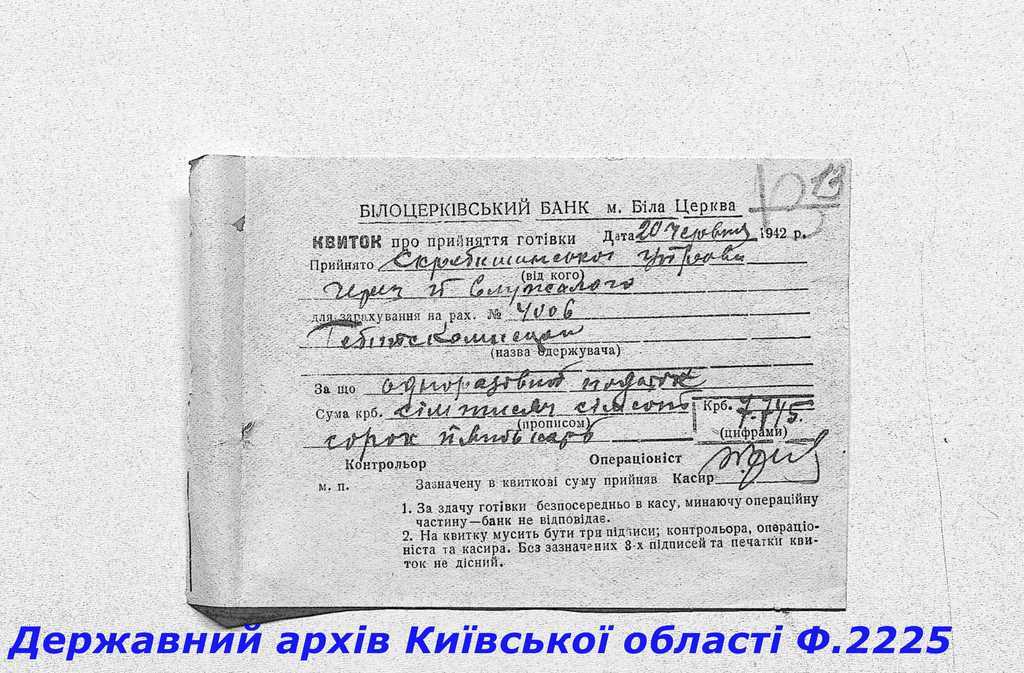 13
БІЛОЦЕРКІВСЬКИЙ БАНК м. Біла Церква
КВИТОК про прийняття готівки Дата 20 червня 1942 р.
Прийнято управи
(від кого)
через її
для зарахування на рах. № 4006
Гебітскомісара
(назва одержувача)
За що одноразовий податок
Сума крб. сім тисяч сімсот Крб. 7.745.
(прописом) (цифрами)
сорок п'ять карб
Контрольор Операціоніст
м. п. Зазначену в квиткові суму прийняв Касир
1. За здачу готівки безпосередньо в касу, минаючу операційну
частину—банк не відповідає.
2. На квитку мусить бути три підписи; контрольора, операціо-
ніста та касира. Без зазначених 3-х підписей та печатки кви-
ток не дісний.
Державний архів Київської області Ф.2225